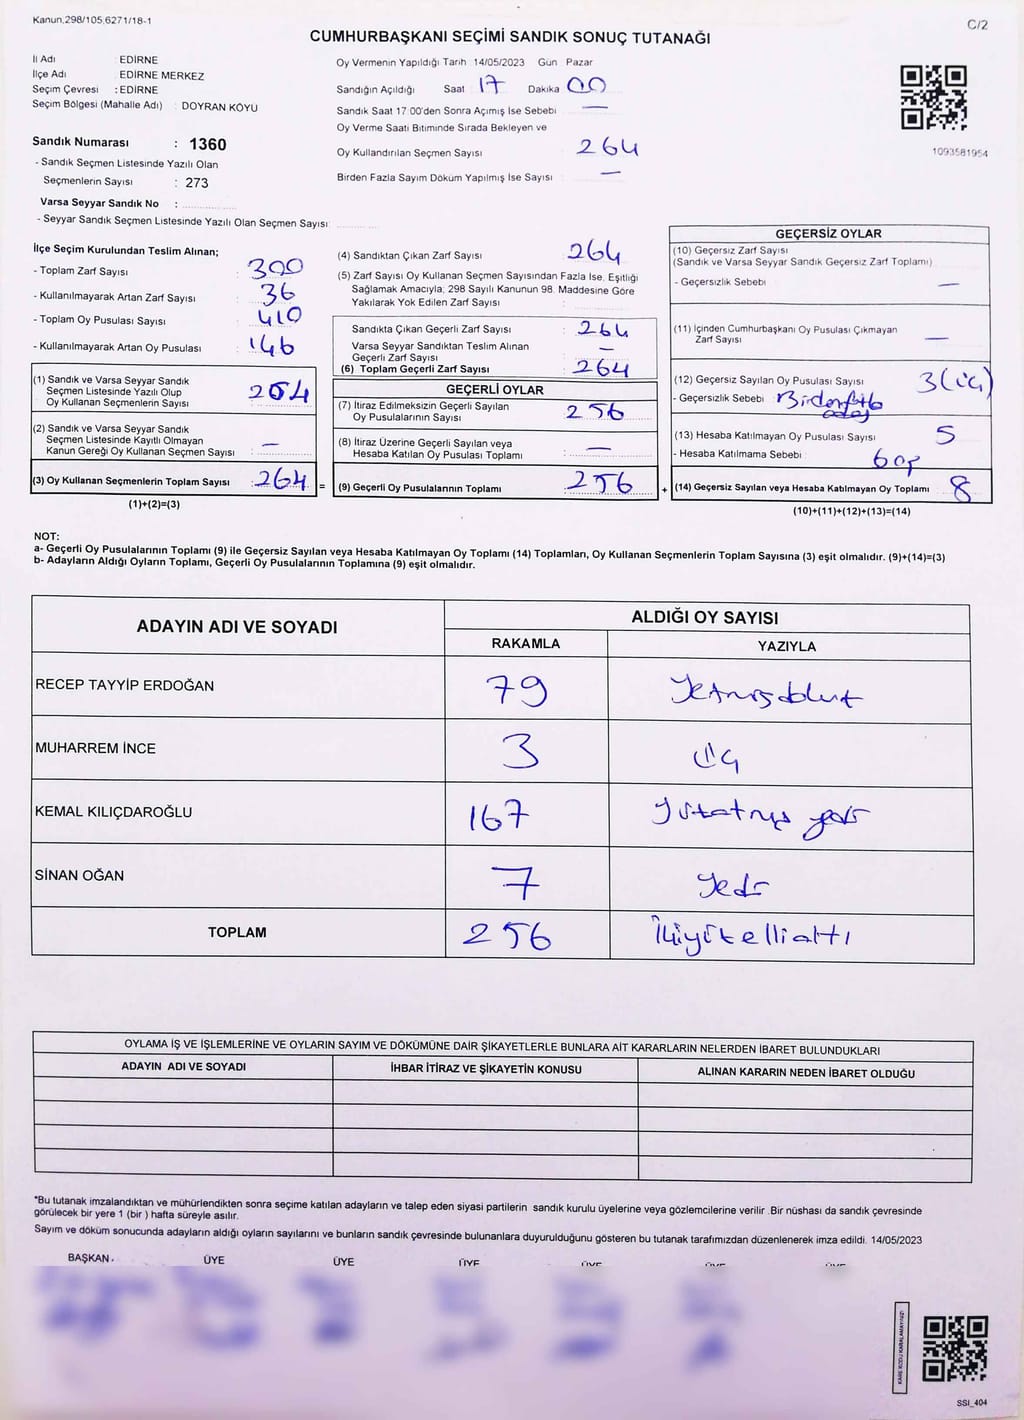 Kanun,298/105,6271/18-1
C/2
CUMHURBAŞKANI SEÇİMİ SANDIK SONUÇ TUTANAĞI
İl Adı : EDİRNE
İlçe Adı : EDİRNE MERKEZ
Seçim Çevresi : EDİRNE
Seçim Bölgesi (Mahalle Adı) : DOYRAN KÖYÜ
Sandık Numarası : 1360
- Sandık Seçmen Listesinde Yazılı Olan
Seçmenlerin Sayısı : 273
Varsa Seyyar Sandık No :
- Seyyar Sandık Seçmen Listesinde Yazılı Olan Seçmen Sayısı:
Oy Vermenin Yapıldığı Tarih :14/05/2023 Gün : Pazar
Sandığın Açıldığı Saat : 17 Dakika : 00
Sandık Saat 17:00'den Sonra Açımış İse Sebebi : —
Oy Verme Saati Bitiminde Sırada Bekleyen ve
Oy Kullandırılan Seçmen Sayısı : 264
Birden Fazla Sayım Döküm Yapılmış İse Sayısı : —
1093581954
İlçe Seçim Kurulundan Teslim Alınan;
- Toplam Zarf Sayısı : 300
- Kullanılmayarak Artan Zarf Sayısı : 36
- Toplam Oy Pusulası Sayısı : 410
- Kullanılmayarak Artan Oy Pusulası : 146
(1) Sandık ve Varsa Seyyar Sandık
Seçmen Listesinde Yazılı Olup
Oy Kullanan Seçmenlerin Sayısı : 264
(2) Sandık ve Varsa Seyyar Sandık
Seçmen Listesinde Kayıtlı Olmayan
Kanun Gereği Oy Kullanan Seçmen Sayısı : —
(3) Oy Kullanan Seçmenlerin Toplam Sayısı : 264 =
(1)+(2)=(3)
(4) Sandıktan Çıkan Zarf Sayısı : 264
(5) Zarf Sayısı Oy Kullanan Seçmen Sayısından Fazla İse, Eşitliği
Sağlamak Amacıyla, 298 Sayılı Kanunun 98. Maddesine Göre
Yakılarak Yok Edilen Zarf Sayısı :
Sandıkta Çıkan Geçerli Zarf Sayısı : 264
Varsa Seyyar Sandıktan Teslim Alınan
Geçerli Zarf Sayısı : —
(6) Toplam Geçerli Zarf Sayısı : 264
GEÇERLİ OYLAR
(7) İtiraz Edilmeksizin Geçerli Sayılan
Oy Pusulalarının Sayısı : 256
(8) İtiraz Üzerine Geçerli Sayılan veya
Hesaba Katılan Oy Pusulası Toplamı : —
(9) Geçerli Oy Pusulalarının Toplamı : 256 +
GEÇERSİZ OYLAR
(10) Geçersiz Zarf Sayısı
(Sandık ve Varsa Seyyar Sandık Geçersiz Zarf Toplamı)
- Geçersizlik Sebebi : —
(11) İçinden Cumhurbaşkanı Oy Pusulası Çıkmayan
Zarf Sayısı : —
(12) Geçersiz Sayılan Oy Pusulası Sayısı : 3 (üç)
- Geçersizlik Sebebi : Birden fazla
aday
(13) Hesaba Katılmayan Oy Pusulası Sayısı : 5
- Hesaba Katılmama Sebebi : boş
(14) Geçersiz Sayılan veya Hesaba Katılmayan Oy Toplamı : 8
(10)+(11)+(12)+(13)=(14)
NOT:
a- Geçerli Oy Pusulalarının Toplamı (9) ile Geçersiz Sayılan veya Hesaba Katılmayan Oy Toplamı (14) Toplamları, Oy Kullanan Seçmenlerin Toplam Sayısına (3) eşit olmalıdır. (9)+(14)=(3)
b- Adayların Aldığı Oyların Toplamı, Geçerli Oy Pusulalarının Toplamına (9) eşit olmalıdır.
ADAYIN ADI VE SOYADI
ALDIĞI OY SAYISI
RAKAMLA YAZIYLA
RECEP TAYYİP ERDOĞAN 79 Yetmişdokuz
MUHARREM İNCE 3 üç
KEMAL KILIÇDAROĞLU 167 Yüzatmış yedi
SİNAN OĞAN 7 Yedi
TOPLAM 256 İkiyüzelli altı
OYLAMA İŞ VE İŞLEMLERİNE VE OYLARIN SAYIM VE DÖKÜMÜNE DAİR ŞİKAYETLERLE BUNLARA AİT KARARLARIN NELERDEN İBARET BULUNDUKLARI
ADAYIN ADI VE SOYADI İHBAR İTİRAZ VE ŞİKAYETİN KONUSU ALINAN KARARIN NEDEN İBARET OLDUĞU
*Bu tutanak imzalandıktan ve mühürlendikten sonra seçime katılan adayların ve talep eden siyasi partilerin sandık kurulu üyelerine veya gözlemcilerine verilir .Bir nüshası da sandık çevresinde
görülecek bir yere 1 (bir ) hafta süreyle asılır.
Sayım ve döküm sonucunda adayların aldığı oyların sayılarını ve bunların sandık çevresinde bulunanlara duyurulduğunu gösteren bu tutanak tarafımızdan düzenlenerek imza edildi. 14/05/2023
BAŞKAN ÜYE ÜYE ÜYE ÜYE ÜYE ÜYE
KARE KODU KARALAMAYINIZ!
SSI_404